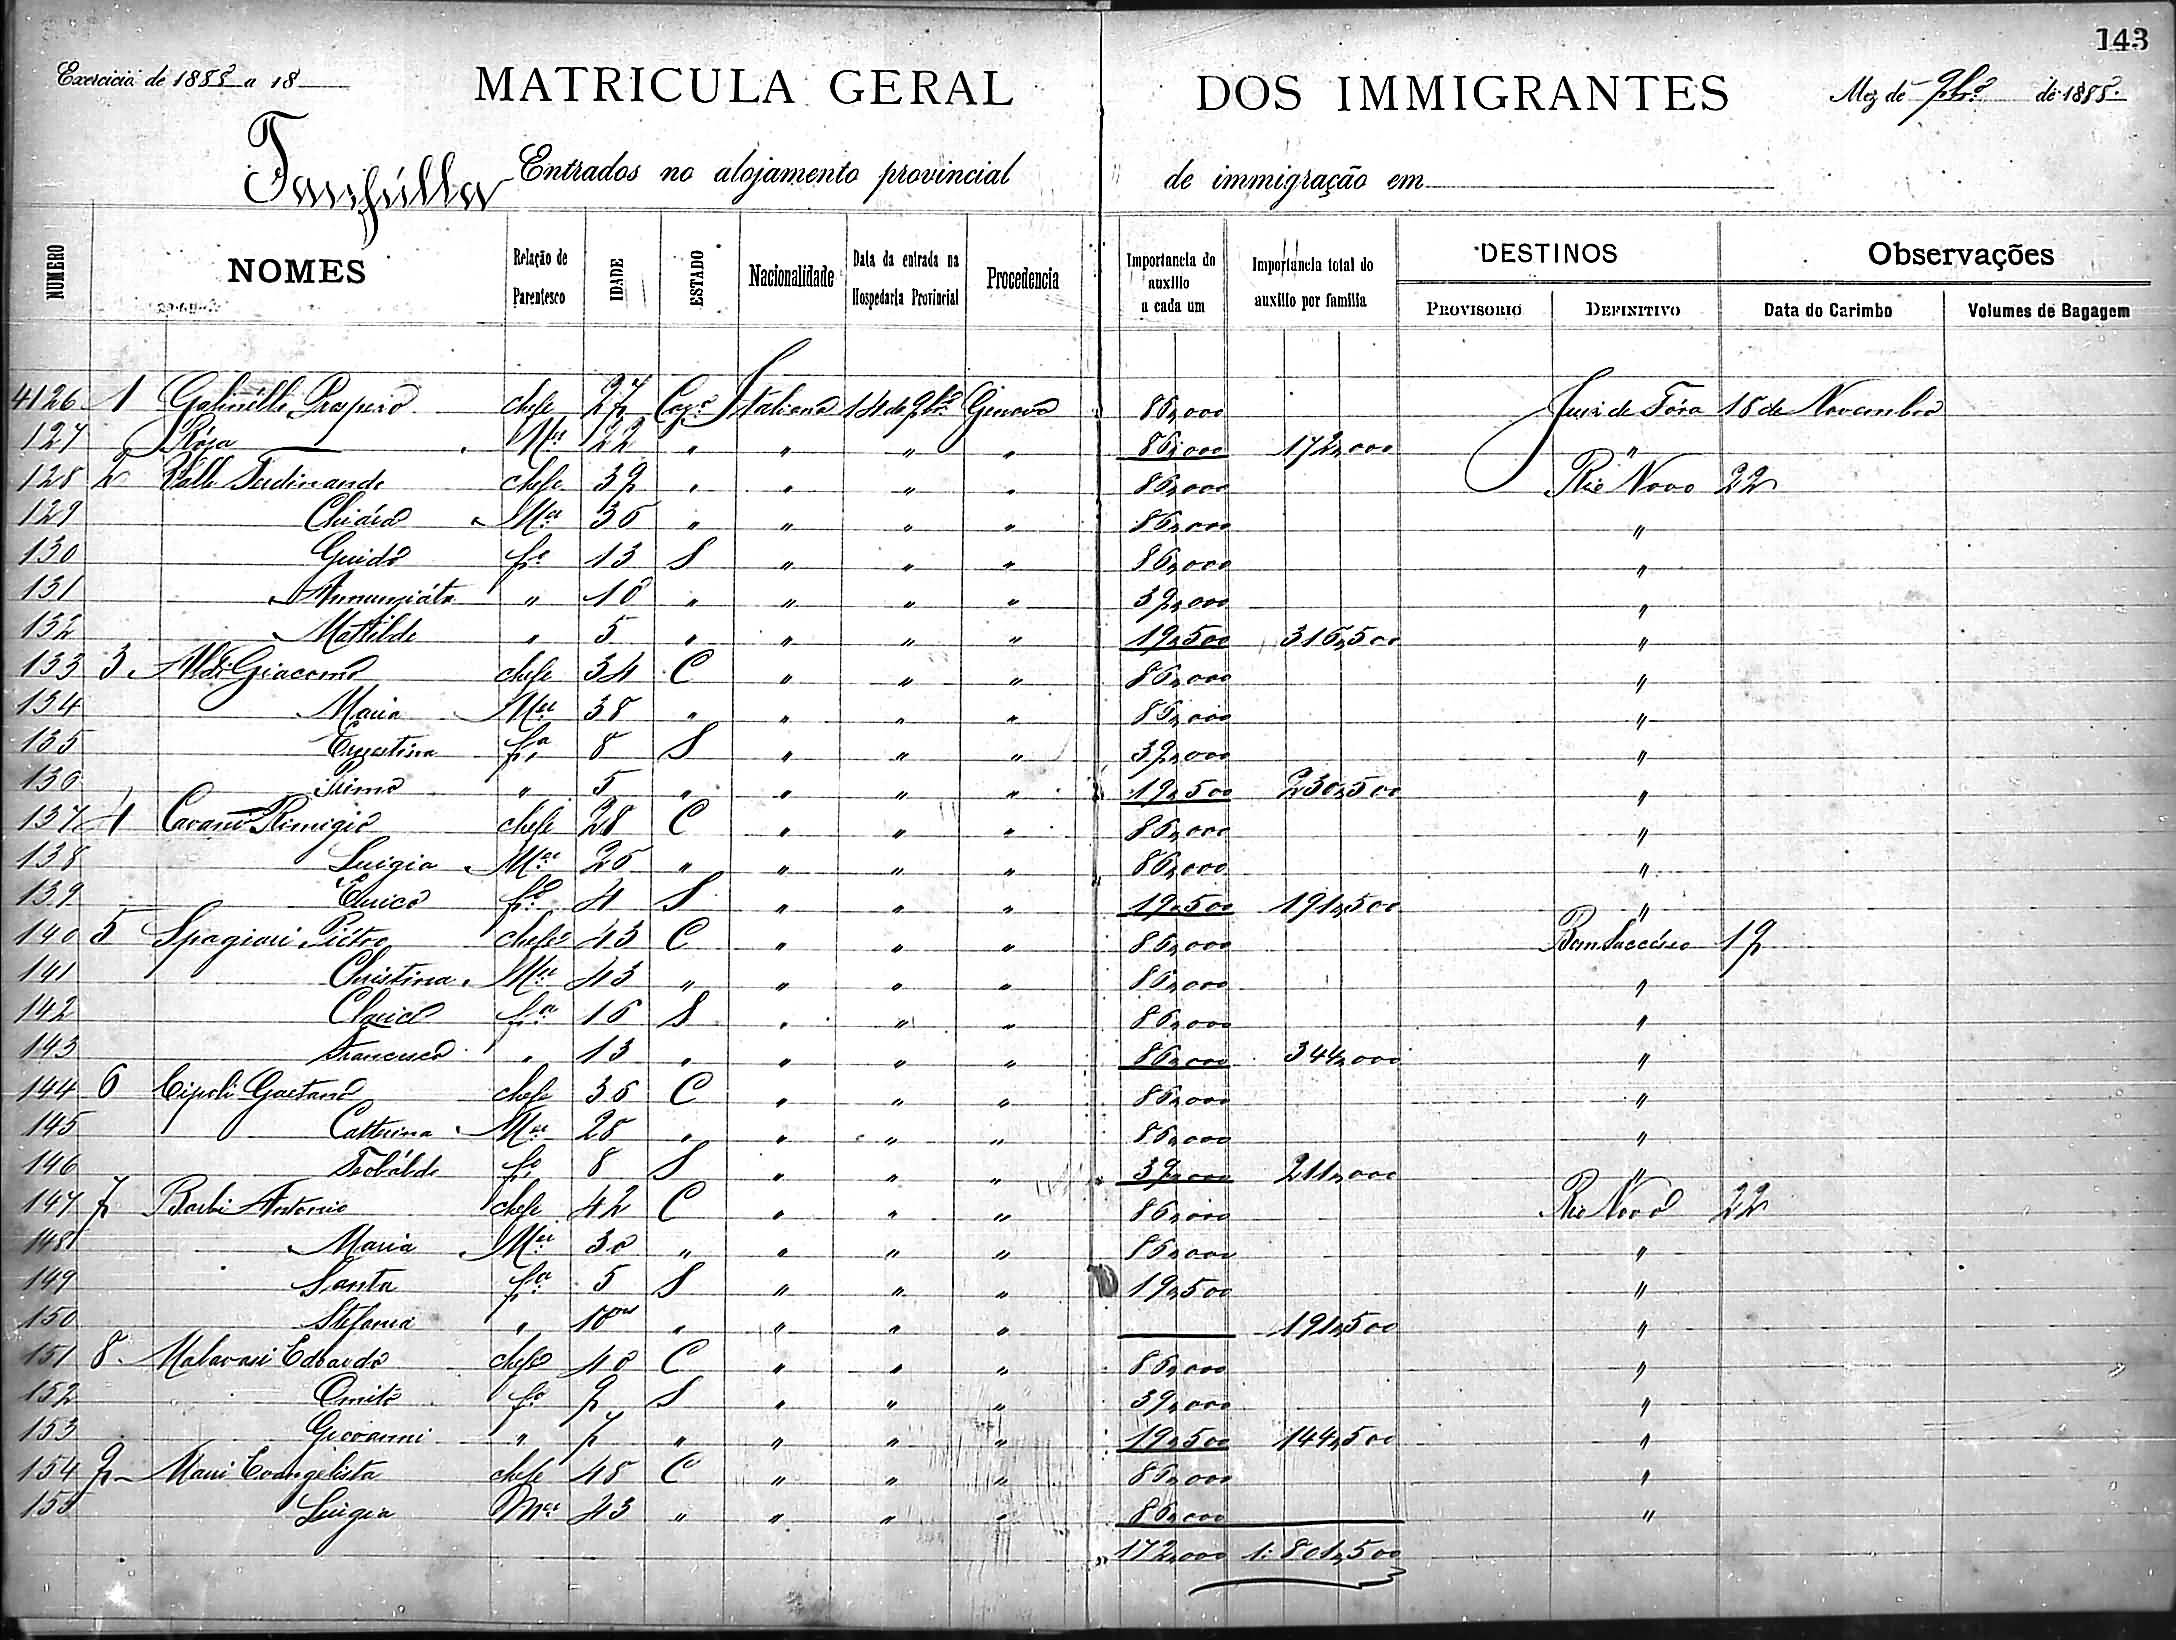 143
Exercicio de 1888 a 18
MATRICULA GERAL DOS IMMIGRANTES
Mez de 9bro de 1888
Fanfulla
Entrados no alojamento provincial de immigração em
NUMERO NOMES Relação de Parentesco IDADE ESTADO Nacionalidade Data da entrada na Hospedaria Provincial Procedencia Importancia do auxilio a cada um Importancia total do auxilio por familia DESTINOS PROVISORIO DEFINITIVO Observações Data do Carimbo Volumes de Bagagem
4126 1 Galinelli Prospero chefe 27 Cazo Italiana 14 de 9bro Genova 86,000 Juiz de Fóra 18 de Novembro
127 Rosa Mer 22 " " " " 86,000 172,000 "
128 2 Valle Ferdinando chefe 39 " " " " 86,000 Rio Novo 22
129 Chiára Mer 36 " " " " 86,000 "
130 Guido fo 13 S " " " 86,000 "
131 Annunziáta " 10 " " " " 39,000 "
132 Mattilde " 5 " " " " 19,500 316,500 "
133 3 Aldi Giacomo chefe 34 C " " " 86,000 "
134 Maria Mer 38 " " " " 86,000 "
135 Ernestina fa 8 S " " " 39,000 "
136 Primo " 5 " " " " 19,500 230,500 "
137 4 Cavani Remigio chefe 28 C " " " 86,000 "
138 Luigia Mer 26 " " " " 86,000 "
139 Enrico fo 4 S " " " 19,500 191,500 "
140 5 Spagiari Piétro chefe 43 C " " " 86,000 Bom Successo 19
141 Christina Mer 43 " " " " 86,000 "
142 Clarice fa 16 S " " " 86,000 "
143 Francesca " 13 " " " " 86,000 344,000 "
144 6 Cipoli Gaetano chefe 36 C " " " 86,000 "
145 Catterina Mer 28 " " " " 86,000 "
146 Teobáldo fo 8 S " " " 39,000 211,000 "
147 7 Barbi Antonio chefe 42 C " " " 86,000 Rio Novo 22
148 Maria Mer 30 " " " " 86,000 "
149 Santa fa 5 S " " " 19,500 "
150 Stefania " 10ms " " " " 191,500 "
151 8 Malavasi Edoardo chefe 40 C " " " 86,000 "
152 fo 9 S " " " 39,000 "
153 Giovanni " 7 " " " " 19,500 144,500 "
154 9 Evangelista chefe 48 C " " " 86,000 "
155 Luigia Mer 43 " " " " 86,000 "
172,000 1:801,500